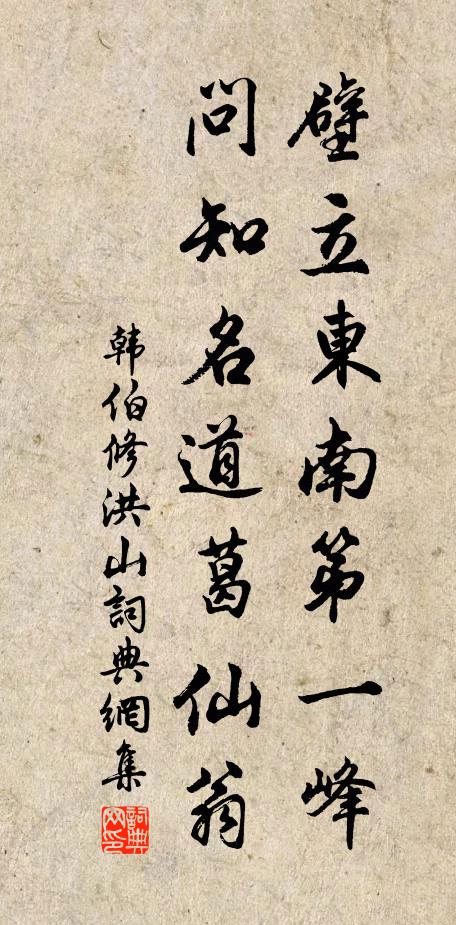 壁立東南第一峰
問知名道葛仙翁
韩伯修洪山詞典網集
詞典
网印